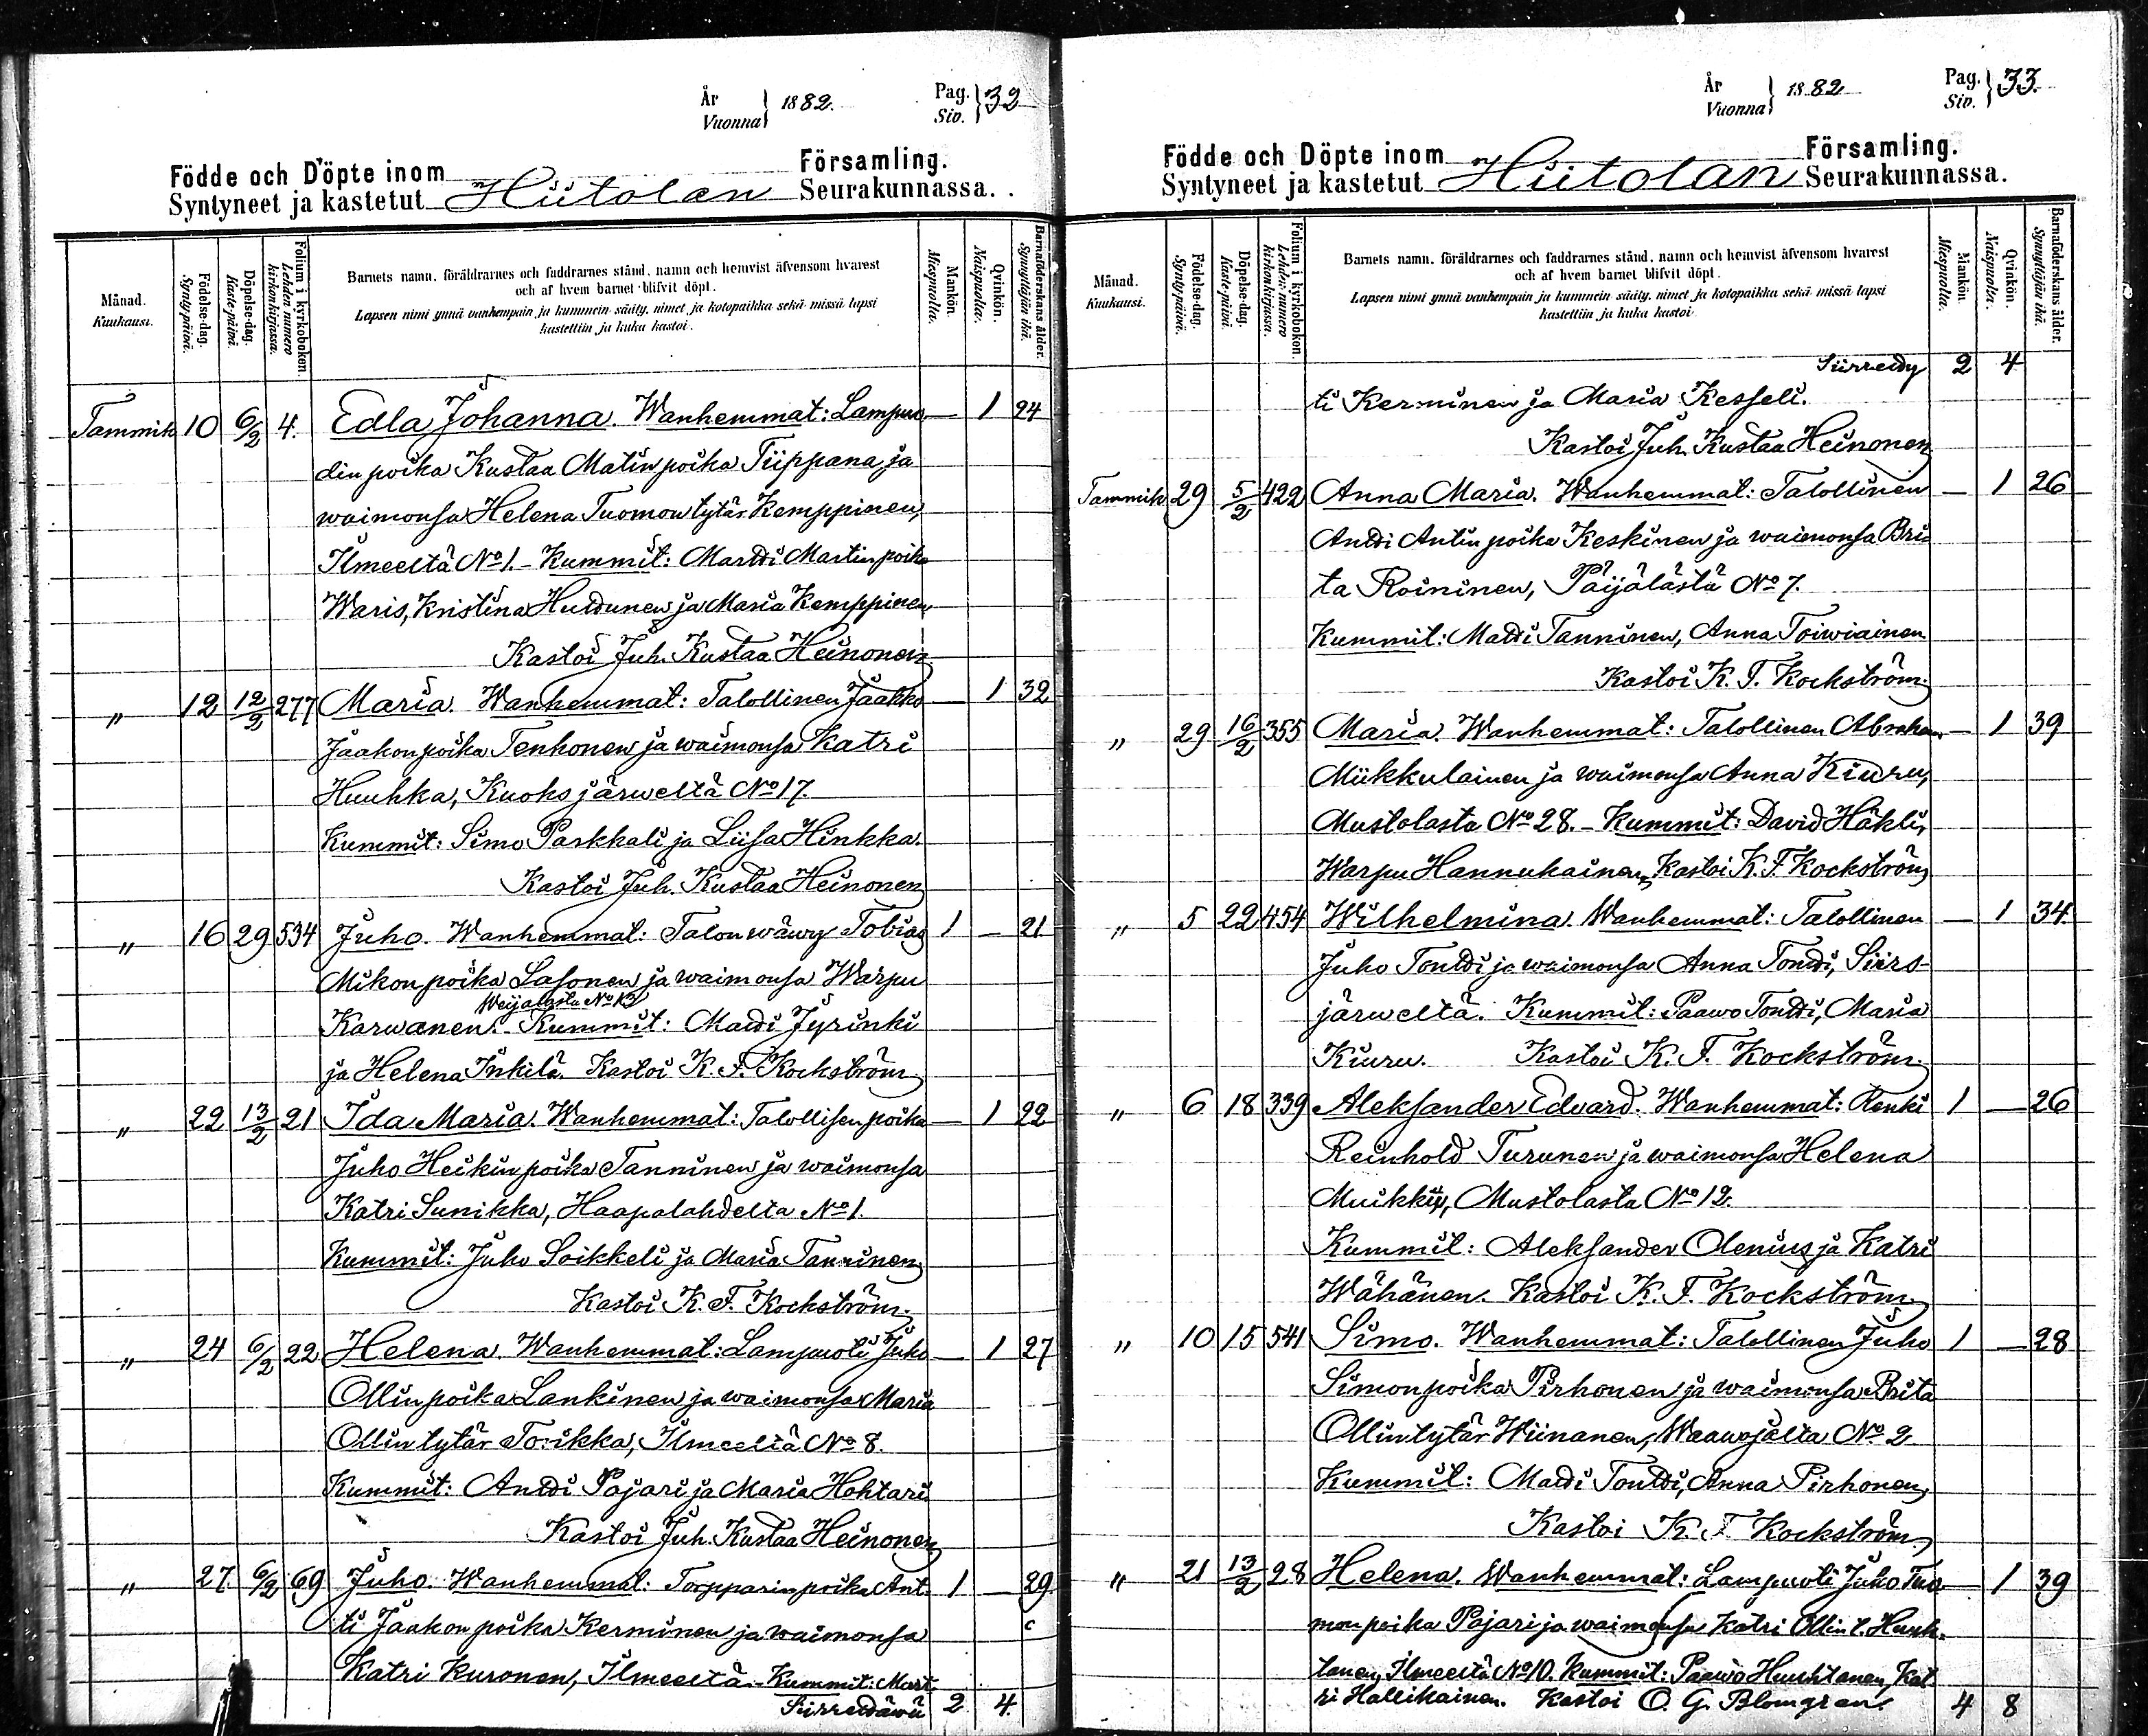 År
Vuonna } 1882.
Pag.
Siv. } 32
Födde och Döpte inom
Syntyneet ja kastetut Hiitolan Församling.
Seurakunnassa.
Månad.
Kuukausi.
Födelse-dag.
Synty-päivä.
Döpelse-dag.
Kaste-päivä.
Folium i kyrkoboken.
Lehden numero kirkonkirjassa.
Barnets namn, föräldrarnes och faddrarnes stånd, namn och hemvist äfvensom hvarest
och af hvem barnet blifvit döpt.
Lapsen nimi ynnä vanhempain ja kummein sääty, nimet ja kotopaikka sekä missä lapsi
kastettiin ja kuka kastoi.
Mankön.
Miespuolta.
Qvinkön.
Naispuolta.
Barnaföderskans ålder.
Synnyttäjän ikä.
Tammik 10 6/2 4. Edla Johanna. Wanhemmat: Lampuo — 1 24
din poika Kustaa Matin poika Tiippana ja
waimonsa Helena Tuomon tytär Kemppinen,
Ilmeeltä No 1. - Kummit: Martti Martin poika
Waris, Kristina Huttunen ja Maria Kemppinen,
Kastoi Juh. Kustaa Heinonen
" 12 12/2 277 Maria. Wanhemmat: Talollinen Jaakko — 1 32
Jaakon poika Tenhonen ja waimonsa Katri
Huuhka, Kuoksjärweltä No 17.
Kummit: Simo Paskkali ja Liisa Hinkka.
Kastoi Juh. Kustaa Heinonen
" 16 29 534 Juho. Wanhemmat: Talon wäwy Tobias 1 — 21
Mikon poika Lasonen ja waimonsa Warpu
Weijalasta No 13
Karwanen. - Kummit: Matti Jyrinki
ja Helena Inkilä. Kastoi K. F. Kockström
" 22 13/2 21 Ida Maria. Wanhemmat: Talollisen poika — 1 22
Juho Heikin poika Tanninen ja waimonsa
Katri Sunikka, Haapalahdelta No 1.
Kummit: Juho Soikkeli ja Maria Tanninen
Kastoi K. F. Kockström.
" 24 6/2 22 Helena. Wanhemmat: Lampuoti Juho — 1 27
Ollin poika Lankinen ja waimonsa Maria
Ollin tytär Torikka, Ilmeeltä No 8.
Kummit: Antti Pajari ja Maria Hohtari
Kastoi Juh. Kustaa Heinonen
" 27. 6/2 69 Juho. Wanhemmat: Torpparin poika Ant- 1 — 29
ti Jaakon poika Kerminen ja waimonsa
Katri Kuronen, Ilmeeltä. - Kummit: Mart-
Siirrettäwä 2 4.
År
Vuonna } 1882
Pag.
Siv. } 33.
Födde och Döpte inom
Syntyneet ja kastetut Hiitolan Församling.
Seurakunnassa.
Månad.
Kuukausi.
Födelse-dag.
Synty-päivä.
Döpelse-dag.
Kaste-päivä.
Folium i kyrkoboken.
Lehden numero kirkonkirjassa.
Barnets namn, föräldrarnes och faddrarnes stånd, namn och hemvist äfvensom hvarest
och af hvem barnet blifvit döpt.
Lapsen nimi ynnä vanhempain ja kummein sääty, nimet ja kotopaikka sekä missä lapsi
kastettiin ja kuka kastoi.
Mankön.
Miespuolta.
Qvinkön.
Naispuolta.
Barnaföderskans ålder.
Synnyttäjän ikä.
Siirretty 2 4
ti Kerminen ja Maria Kesseli.
Kastoi Juh. Kustaa Heinonen
Tammik 29 5/2 422 Anna Maria. Wanhemmat: Talollinen — 1 26
Antti Antin poika Keskinen ja waimonsa Bri-
ta Roininen, Päijälästä No 7.
Kummit: Matti Tanninen, Anna Toiwiainen
Kastoi K. F. Kockström.
" 29 16/2 355 Maria. Wanhemmat: Talollinen Abraham — 1 39
Miikkulainen ja waimonsa Anna Kiuru,
Mustolasta No 28. - Kummit: David Häkli,
Warpu Hannukainen, Kastoi K. F. Kockström
" 5 22 454 Wilhelmina. Wanhemmat: Talollinen — 1 34.
Juho Tontti ja waimonsa Anna Tontti, Siiro-
järweltä. Kummit: Paawo Tontti, Maria
Kiuru. Kastoi K. F. Kockström.
" 6 18 339 Aleksander Edvard. Wanhemmat: Renki 1 — 26
Reinhold Turunen ja waimonsa Helena
Muikku, Mustolasta No 12.
Kummit: Aleksander Olenius ja Katri
Wähänen. Kastoi K. F. Kockström.
" 10 15 541 Simo. Wanhemmat: Talollinen Juho 1 — 28
Simon poika Pirhonen ja waimonsa Brita
Ollin tytär Wiinanen, Waawojalta No 2
Kummit: Matti Tontti, Anna Pirhonen,
Kastoi K. F. Kockström,
" 21 13/2 28 Helena. Wanhemmat: Lampuoti Juho Tuo — 1 39
mon poika Pajari ja waimonsa Katri Ollin t. Huuh-
tanen, Ilmeeltä No 10. Kummit: Paawo Huuhtanen, Kat-
ri Hallikainen. Kastoi O. G. Blomgren. 4 8